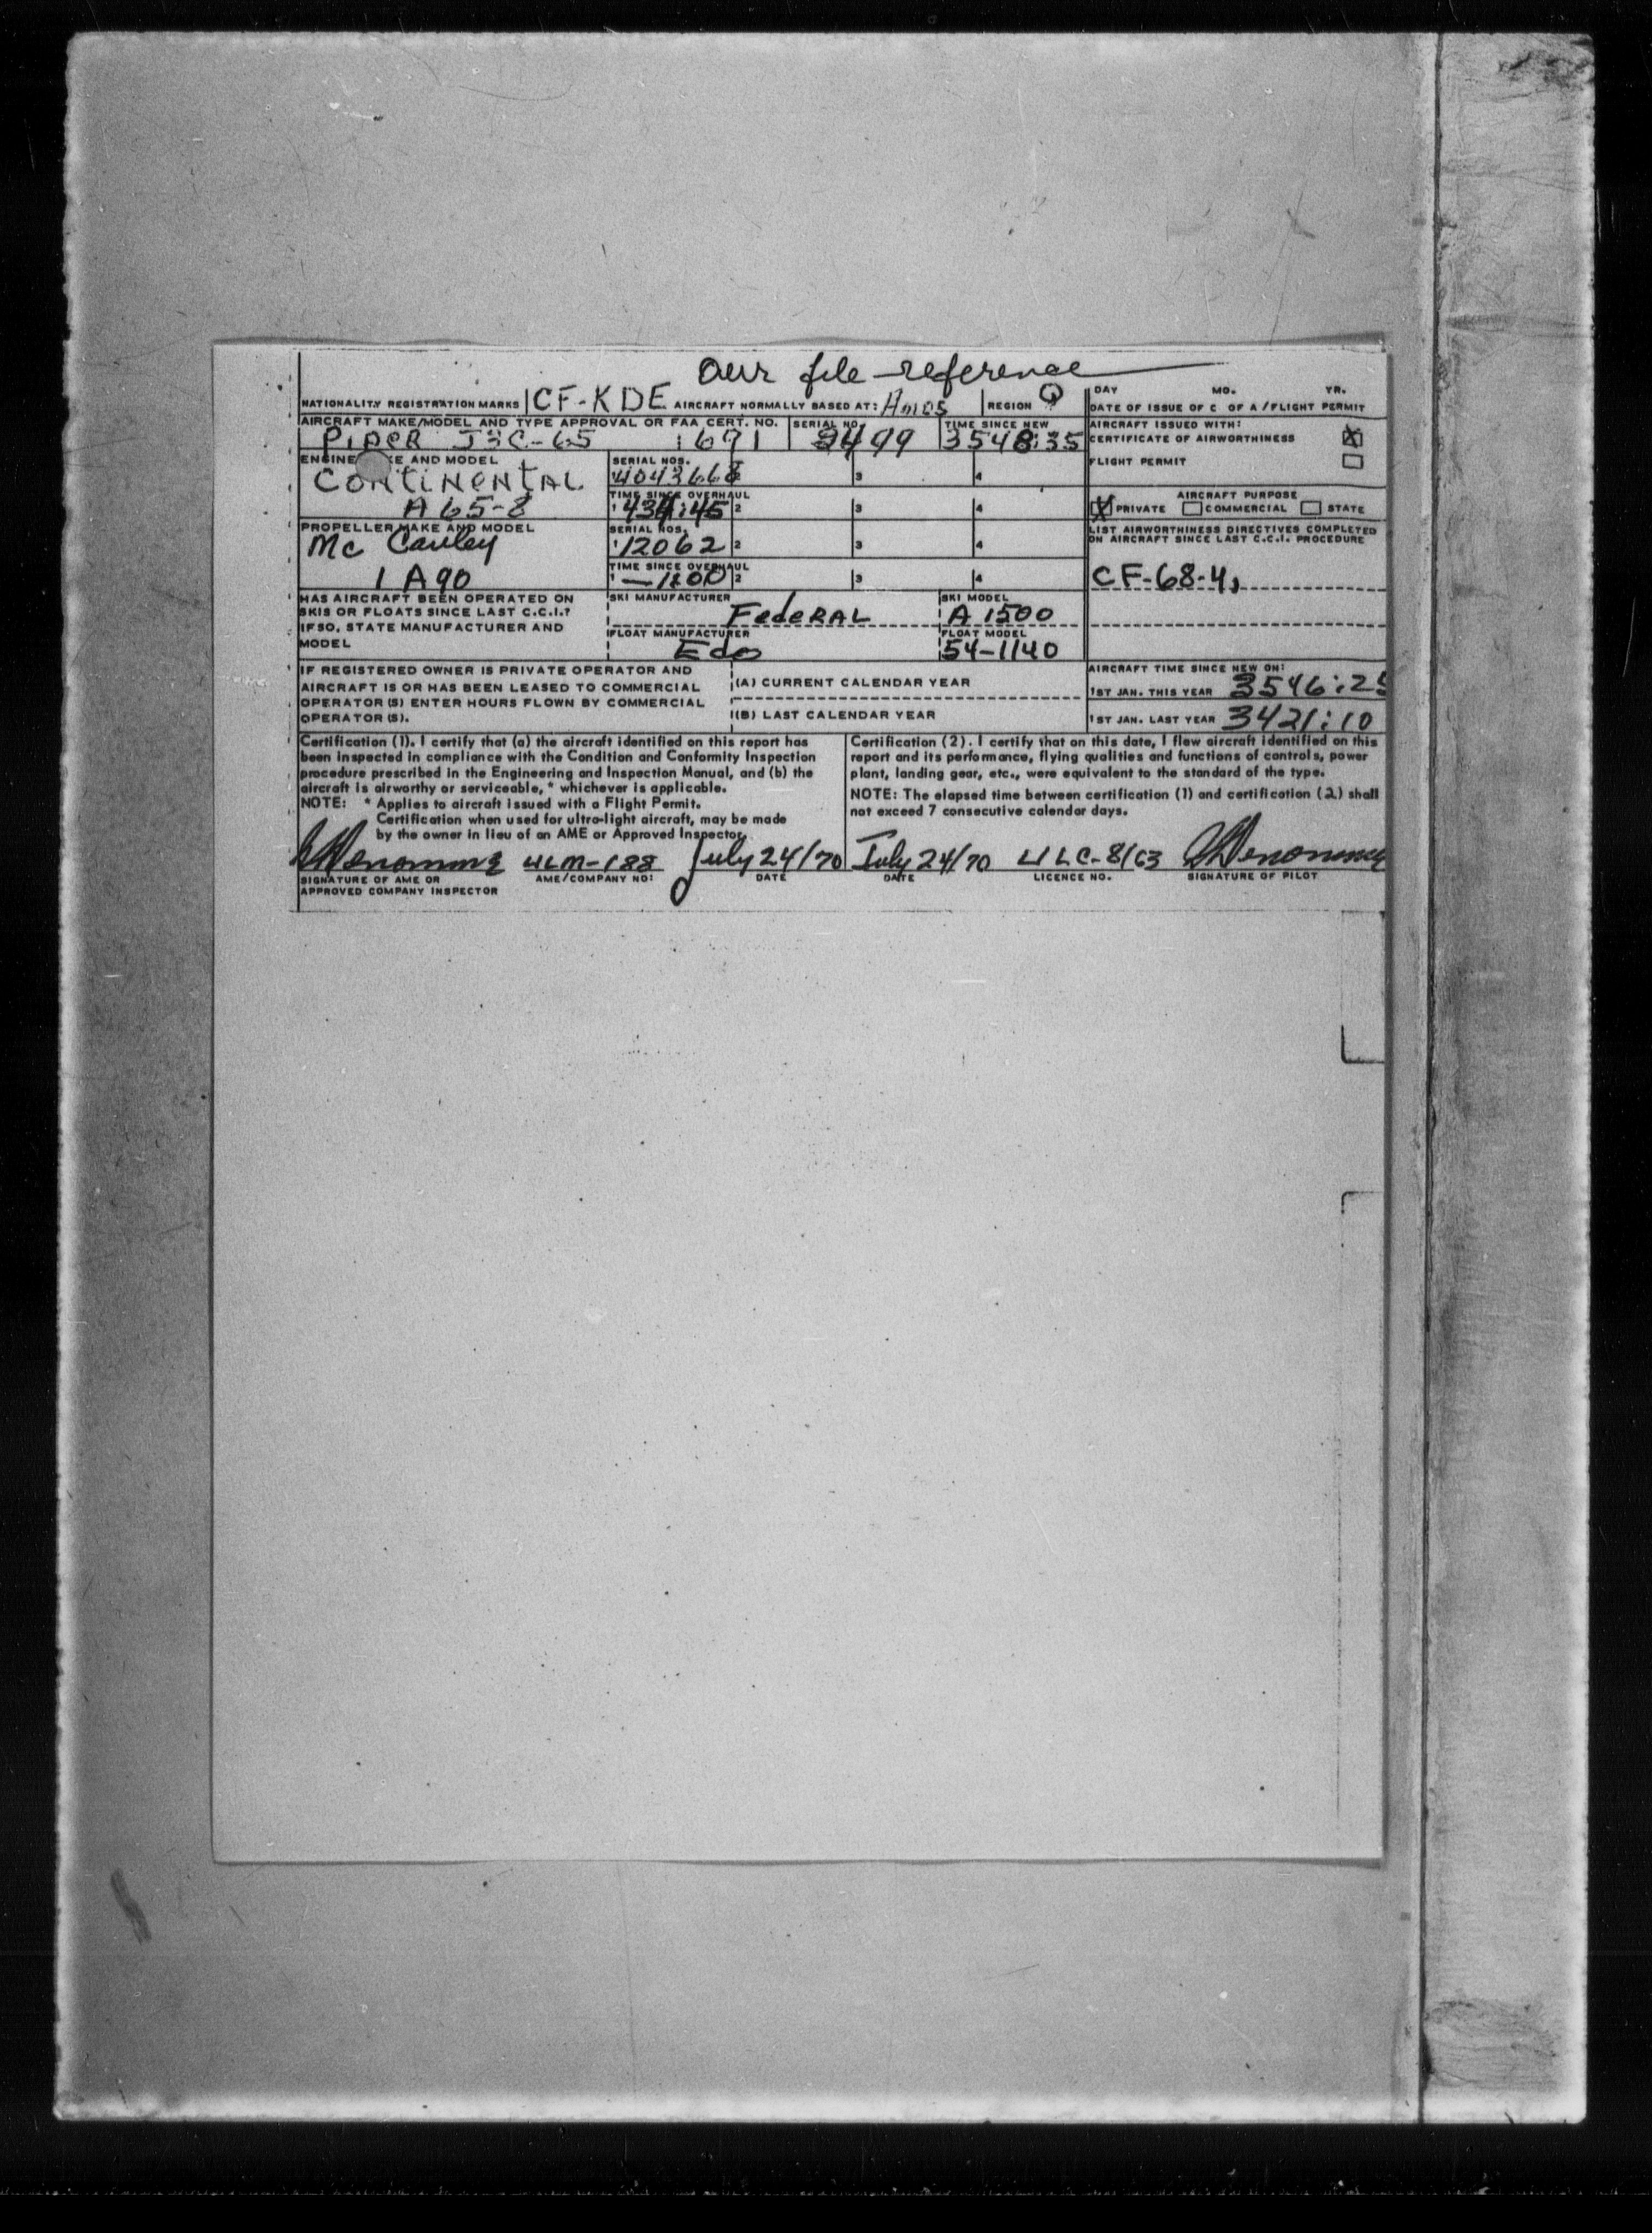 Our file reference
NATIONALITY REGISTRATION MARKS CF-KDE AIRCRAFT NORMALLY BASED AT: Amos REGION Q
DAY MO. YR.
DATE OF ISSUE OF C OF A / FLIGHT PERMIT
AIRCRAFT MAKE/MODEL AND TYPE APPROVAL OR FAA CERT. NO.
PIPER J3C-65 691
SERIAL NO.
2499
TIME SINCE NEW
3548:35
AIRCRAFT ISSUED WITH:
CERTIFICATE OF AIRWORTHINESS X
FLIGHT PERMIT
ENGINE KE AND MODEL
CONTINENTAL
A 65-8
SERIAL NOS.
3 4
TIME SINCE OVERHAUL
1 2 3 4
AIRCRAFT PURPOSE
X PRIVATE COMMERCIAL STATE
PROPELLER MAKE AND MODEL
Mc Cauley
1 A90
SERIAL NOS.
1 12062 2 3 4
TIME SINCE OVERHAUL
1 2 3 4
LIST AIRWORTHINESS DIRECTIVES COMPLETED
ON AIRCRAFT SINCE LAST C.C.I. PROCEDURE
CF-68-4,
HAS AIRCRAFT BEEN OPERATED ON
SKIS OR FLOATS SINCE LAST C.C.I.?
IF SO, STATE MANUFACTURER AND
MODEL
SKI MANUFACTURER
FedeRAL
SKI MODEL
A 1500
FLOAT MANUFACTURER
Edo
FLOAT MODEL
54-1140
IF REGISTERED OWNER IS PRIVATE OPERATOR AND
AIRCRAFT IS OR HAS BEEN LEASED TO COMMERCIAL
OPERATOR (S) ENTER HOURS FLOWN BY COMMERCIAL
OPERATOR (S).
(A) CURRENT CALENDAR YEAR
(B) LAST CALENDAR YEAR
AIRCRAFT TIME SINCE NEW ON:
1ST JAN. THIS YEAR 3546:25
1ST JAN. LAST YEAR 3421:10
Certification (1). I certify that (a) the aircraft identified on this report has
been inspected in compliance with the Condition and Conformity Inspection
procedure prescribed in the Engineering and Inspection Manual, and (b) the
aircraft is airworthy or serviceable, * whichever is applicable.
NOTE: * Applies to aircraft issued with a Flight Permit.
Certification when used for ultra-light aircraft, may be made
by the owner in lieu of an AME or Approved Inspector.
Certification (2). I certify that on this date, I flew aircraft identified on this
report and its performance, flying qualities and functions of controls, power
plant, landing gear, etc., were equivalent to the standard of the type.
NOTE: The elapsed time between certification (1) and certification (2) shall
not exceed 7 consecutive calendar days.
ULM-188 July 24/70 July 24/70 ULC-8163
SIGNATURE OF AME OR
APPROVED COMPANY INSPECTOR
AME/COMPANY NO: DATE DATE LICENCE NO. SIGNATURE OF PILOT